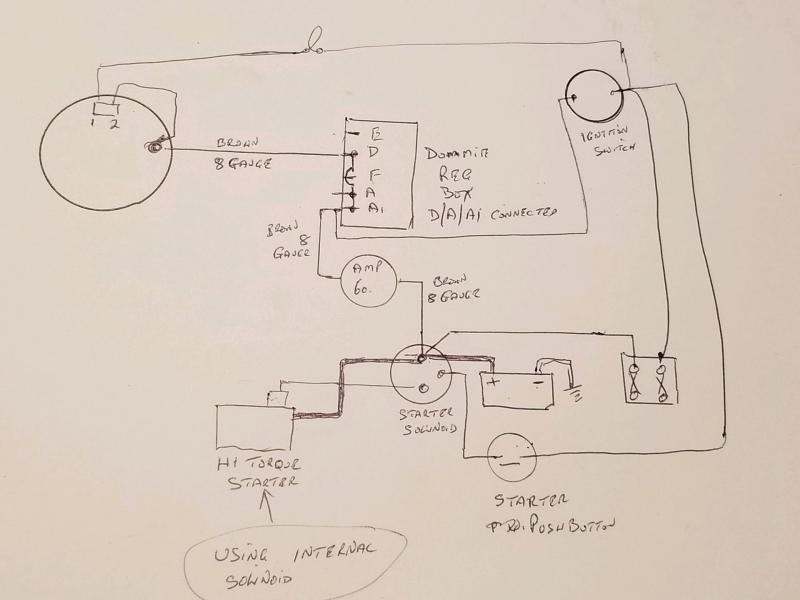 1 2
BROWN
8 GAUGE
E
D
F
A
A1
REG
BOX
D/A/A1 CONNECTED
IGNITION
SWITCH
BROWN
8
GAUGE
AMP
60.
BROWN
8 GAUGE
+ -
STARTER
SOLINOID
HI TORQUE
STARTER
STARTER
PUSHBUTTON
USING INTERNAL
SOLINOID